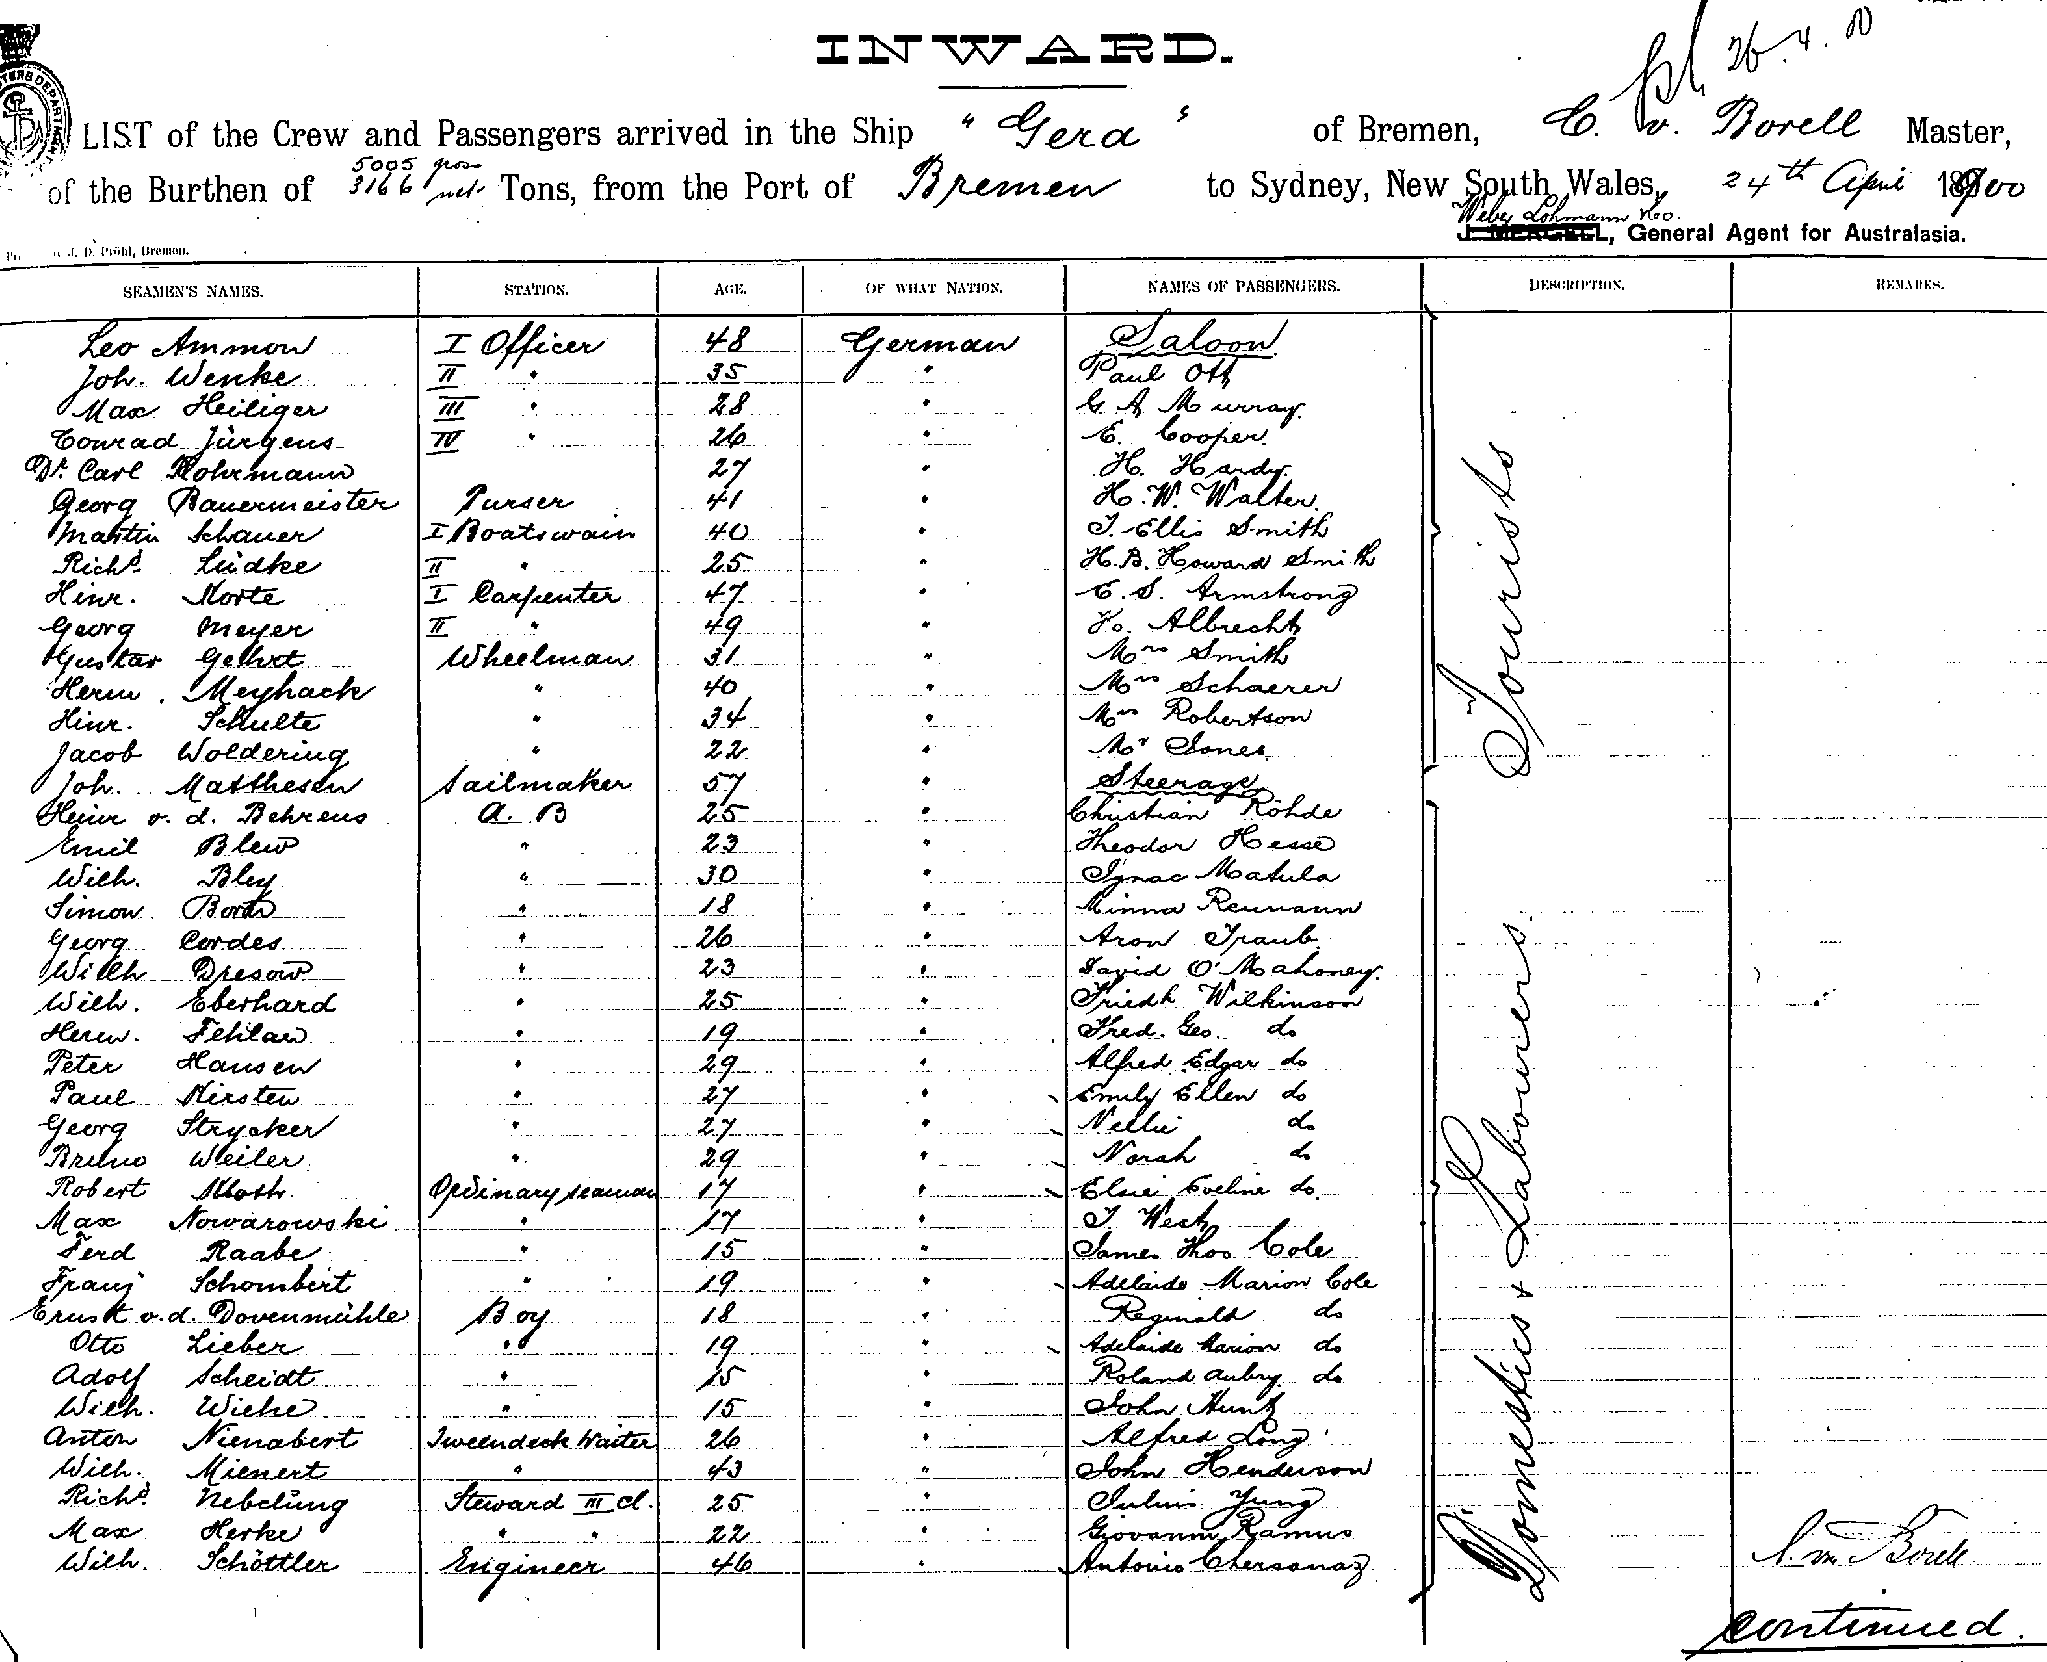 INWARD.
26.4.00
LIST of the Crew and Passengers arrived in the Ship "Gera" of Bremen, C. v. Borell Master,
5005 gross
of the Burthen of 3166 net Tons, from the Port of Bremen to Sydney, New South Wales, 24th April 1900
Weber Lohmann & Co.
J. MERGELL, General Agent for Australasia.
J. D. Pröhl, Bremen.
SEAMEN'S NAMES. STATION. AGE. OF WHAT NATION. NAMES OF PASSENGERS. DESCRIPTION. REMARKS.
Leo Ammon I Officer 48 German Saloon
Joh. Wenke II " 35 " Paul Ott
Max Heiliger III " 28 " G A Murray.
Conrad Jürgens IV " 26 " E. Cooper.
Dr. Carl Rohrmann 27 " H. Hardy.
Georg Bauermeister Purser 41 " H. W. Walter.
Martin Schauer I Boatswain 40 " T. Ellis Smith
Richd. Lüdke II " 25 " H. B. Howard Smith
Hinr. Korte I Carpenter 47 " E. S. Armstrong
Georg Meyer II " 49 " Albrecht
Gustav Gehrt Wheelman 31 " Mrs Smith
Herm. Meyhack " 40 " Mrs Schaerer
Hinr. Schulte " 34 " Mrs Robertson
Jacob Woldering " 22 " Mr Jones
Joh. Matthesen Sailmaker 57 " Steerage
Heinr v. d. Behrens A. B 25 " Christian Rohde
Emil Blew " 23 " Theodor Hesse
Wilh. Bley " 30 " Ignac Matula
Simon " 18 " Minna Reumann
Georg Cordes " 26 " Aron Traub
Wilh Dresow " 23 " David O'Mahoney.
Wilh. Eberhard " 25 " Friedk Wilkinson
Herm. Fehlaw " 19 " Fred. Geo. do
Peter Hansen " 29 " Alfred Edgar do
Paul Kirsten " 27 " Emily Ellen do
Georg Strycker " 27 " Nellie do
Bruno Weiler " 29 " Norah do
Robert Kloth Ordinary seaman 17 " Elsie Eveline do.
Max Nowarowski " 17 " T. West
Ferd Raabe " 15 " James Thos Cole
Franz Schombert " 19 " Adelaide Marion Cole
Ernst v. d. Dovenmühle Boy 18 " Reginald do
Otto Lieber " 19 " Adelaide Marion do
Adolf Scheidt " 15 " Roland Aubry do
Wilh. Wiehe " 15 " John Hunt
Anton Nienabert Tweendeck Waiter 26 " Alfred Long
Wilh. Mienert " 43 " John Henderson
Richd. Nebelung Steward III cl. 25 " Julius Jung
Max Herke " " 22 " Giovanni Ramus
Wilh. Schöttler Engineer 46 " Antonio Chersonaz
Tourists
Domestics & Labourers.
C. von Borell
continued.